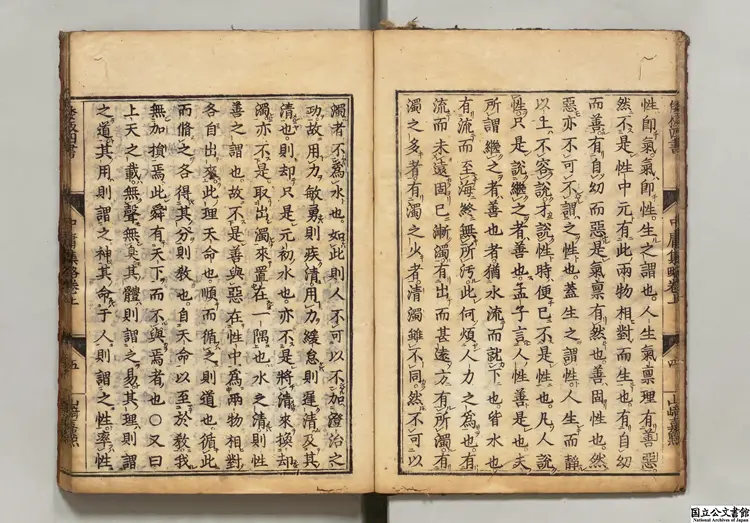 倭版四書 中庸集略卷上 四 山崎嘉點
性即氣氣即性生之謂也。人生氣禀理有善惡。
然不是性中元有此兩物相對而生也有自幼
而善有自幼而惡是氣禀有然也善固性也然
惡亦不可不謂之性也。蓋生之謂性人生而靜
以上不容說才說性時便已不是性也。凡人說
性只是說繼之者善也孟子言人性善是也。夫
所謂繼之者善也者猶水流而就下也皆水也
有流而至海終無所汚此何煩人力之爲也。有
流而未遠固已漸濁有出而甚遠方有所濁有
濁之多者有濁之少者清濁雖不同。然不可以
濁者不爲水也。如此則人不可以不加澄治之
功故用力敏勇則疾清用力緩怠則遲清及其
清也。則却只是元初水也亦不是將清來換却
濁亦不是取出濁來置在一隅也水之清則性
善之謂也故不是善與惡在性中爲兩物相對
各自出來此理天命也順而循之則道也循此
而脩之各得其分則教也。自天命以至於教我
無加損焉此舜有天下而不與焉者也○又曰
上天之載無聲無臭其體則謂之易其理則謂
之道其用則謂之神其命于人則謂之性率性
倭版四書 中庸集略卷上 五 山崎嘉點
国立公文書館
National Archives of Japan